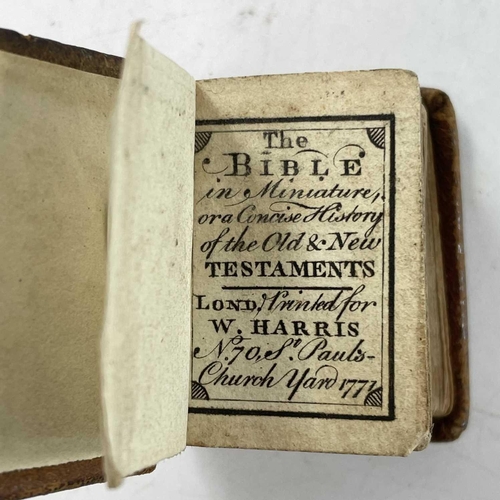 The
BIBLE
in Miniature,
or a Concise History
of the Old & New
TESTAMENTS
LOND: Printed for
W. HARRIS
No. 70, St. Pauls-
Church Yard 1771